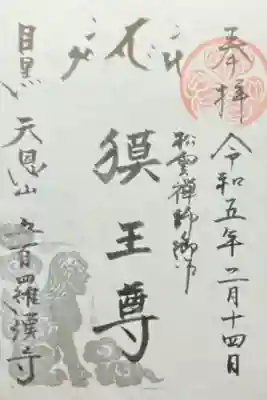 奉拝
令和五年二月十四日
松雲禅師御作
獏王尊
目黒 天恩山 五百羅漢寺